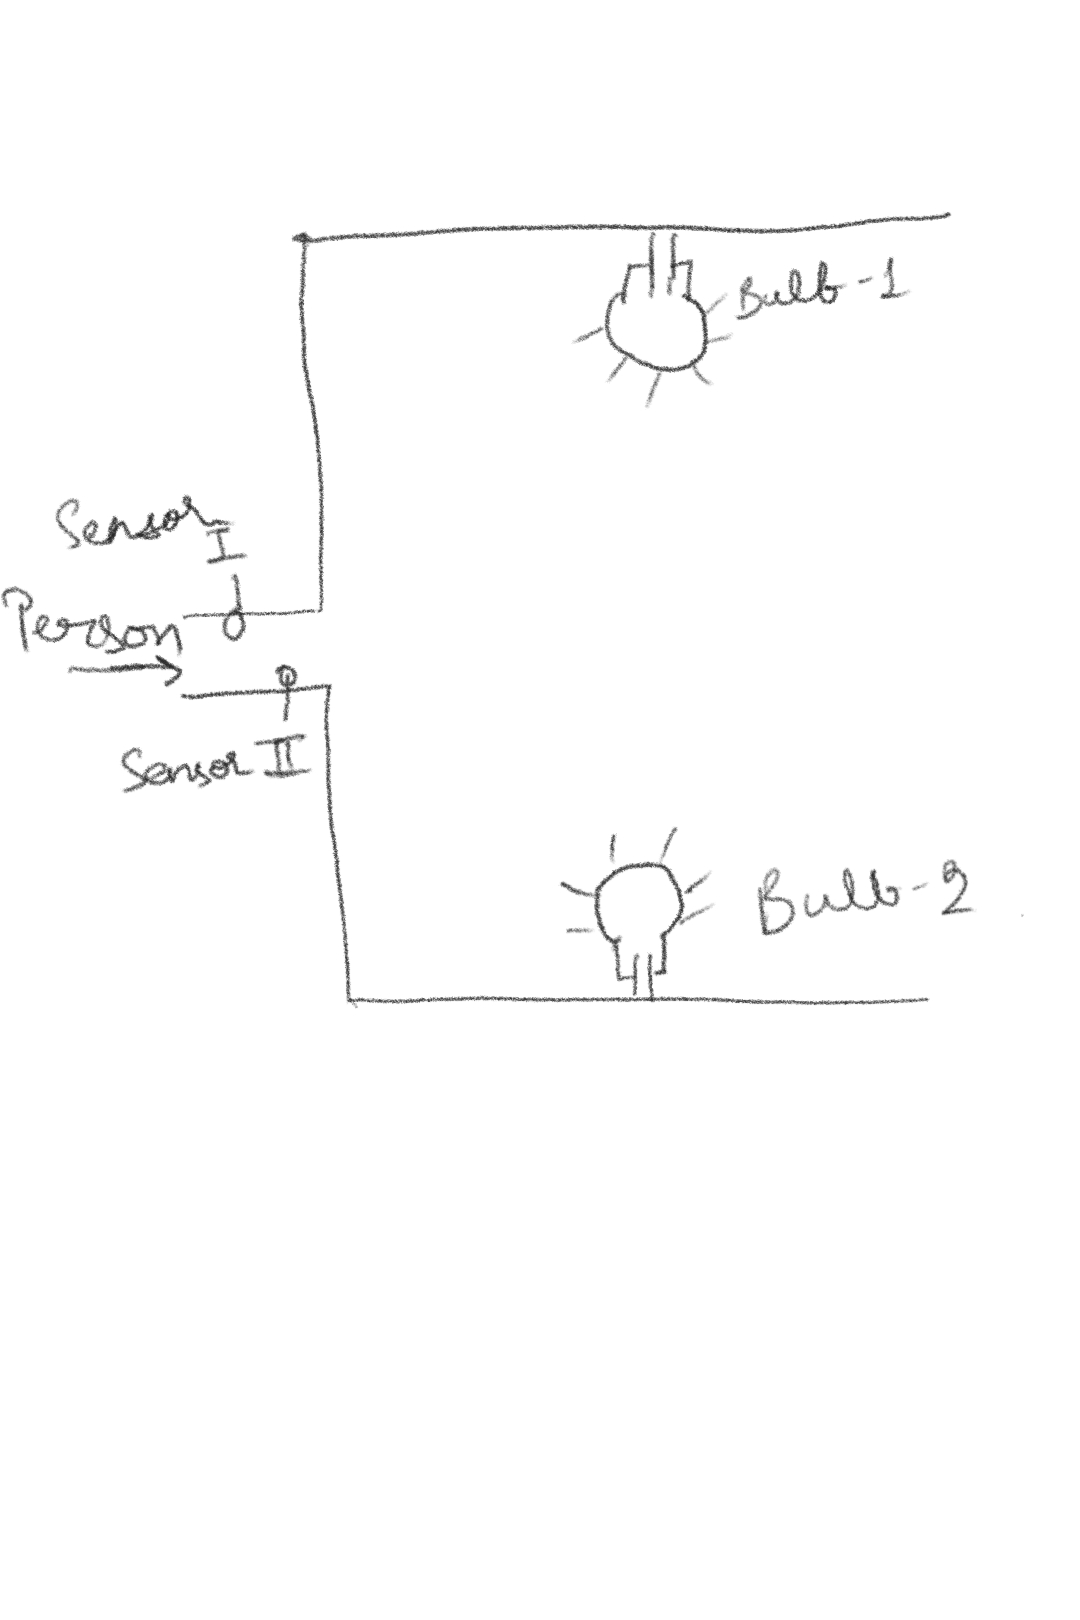 Bulb-1
Sensor
I
Person
Sensor II
Bulb-2